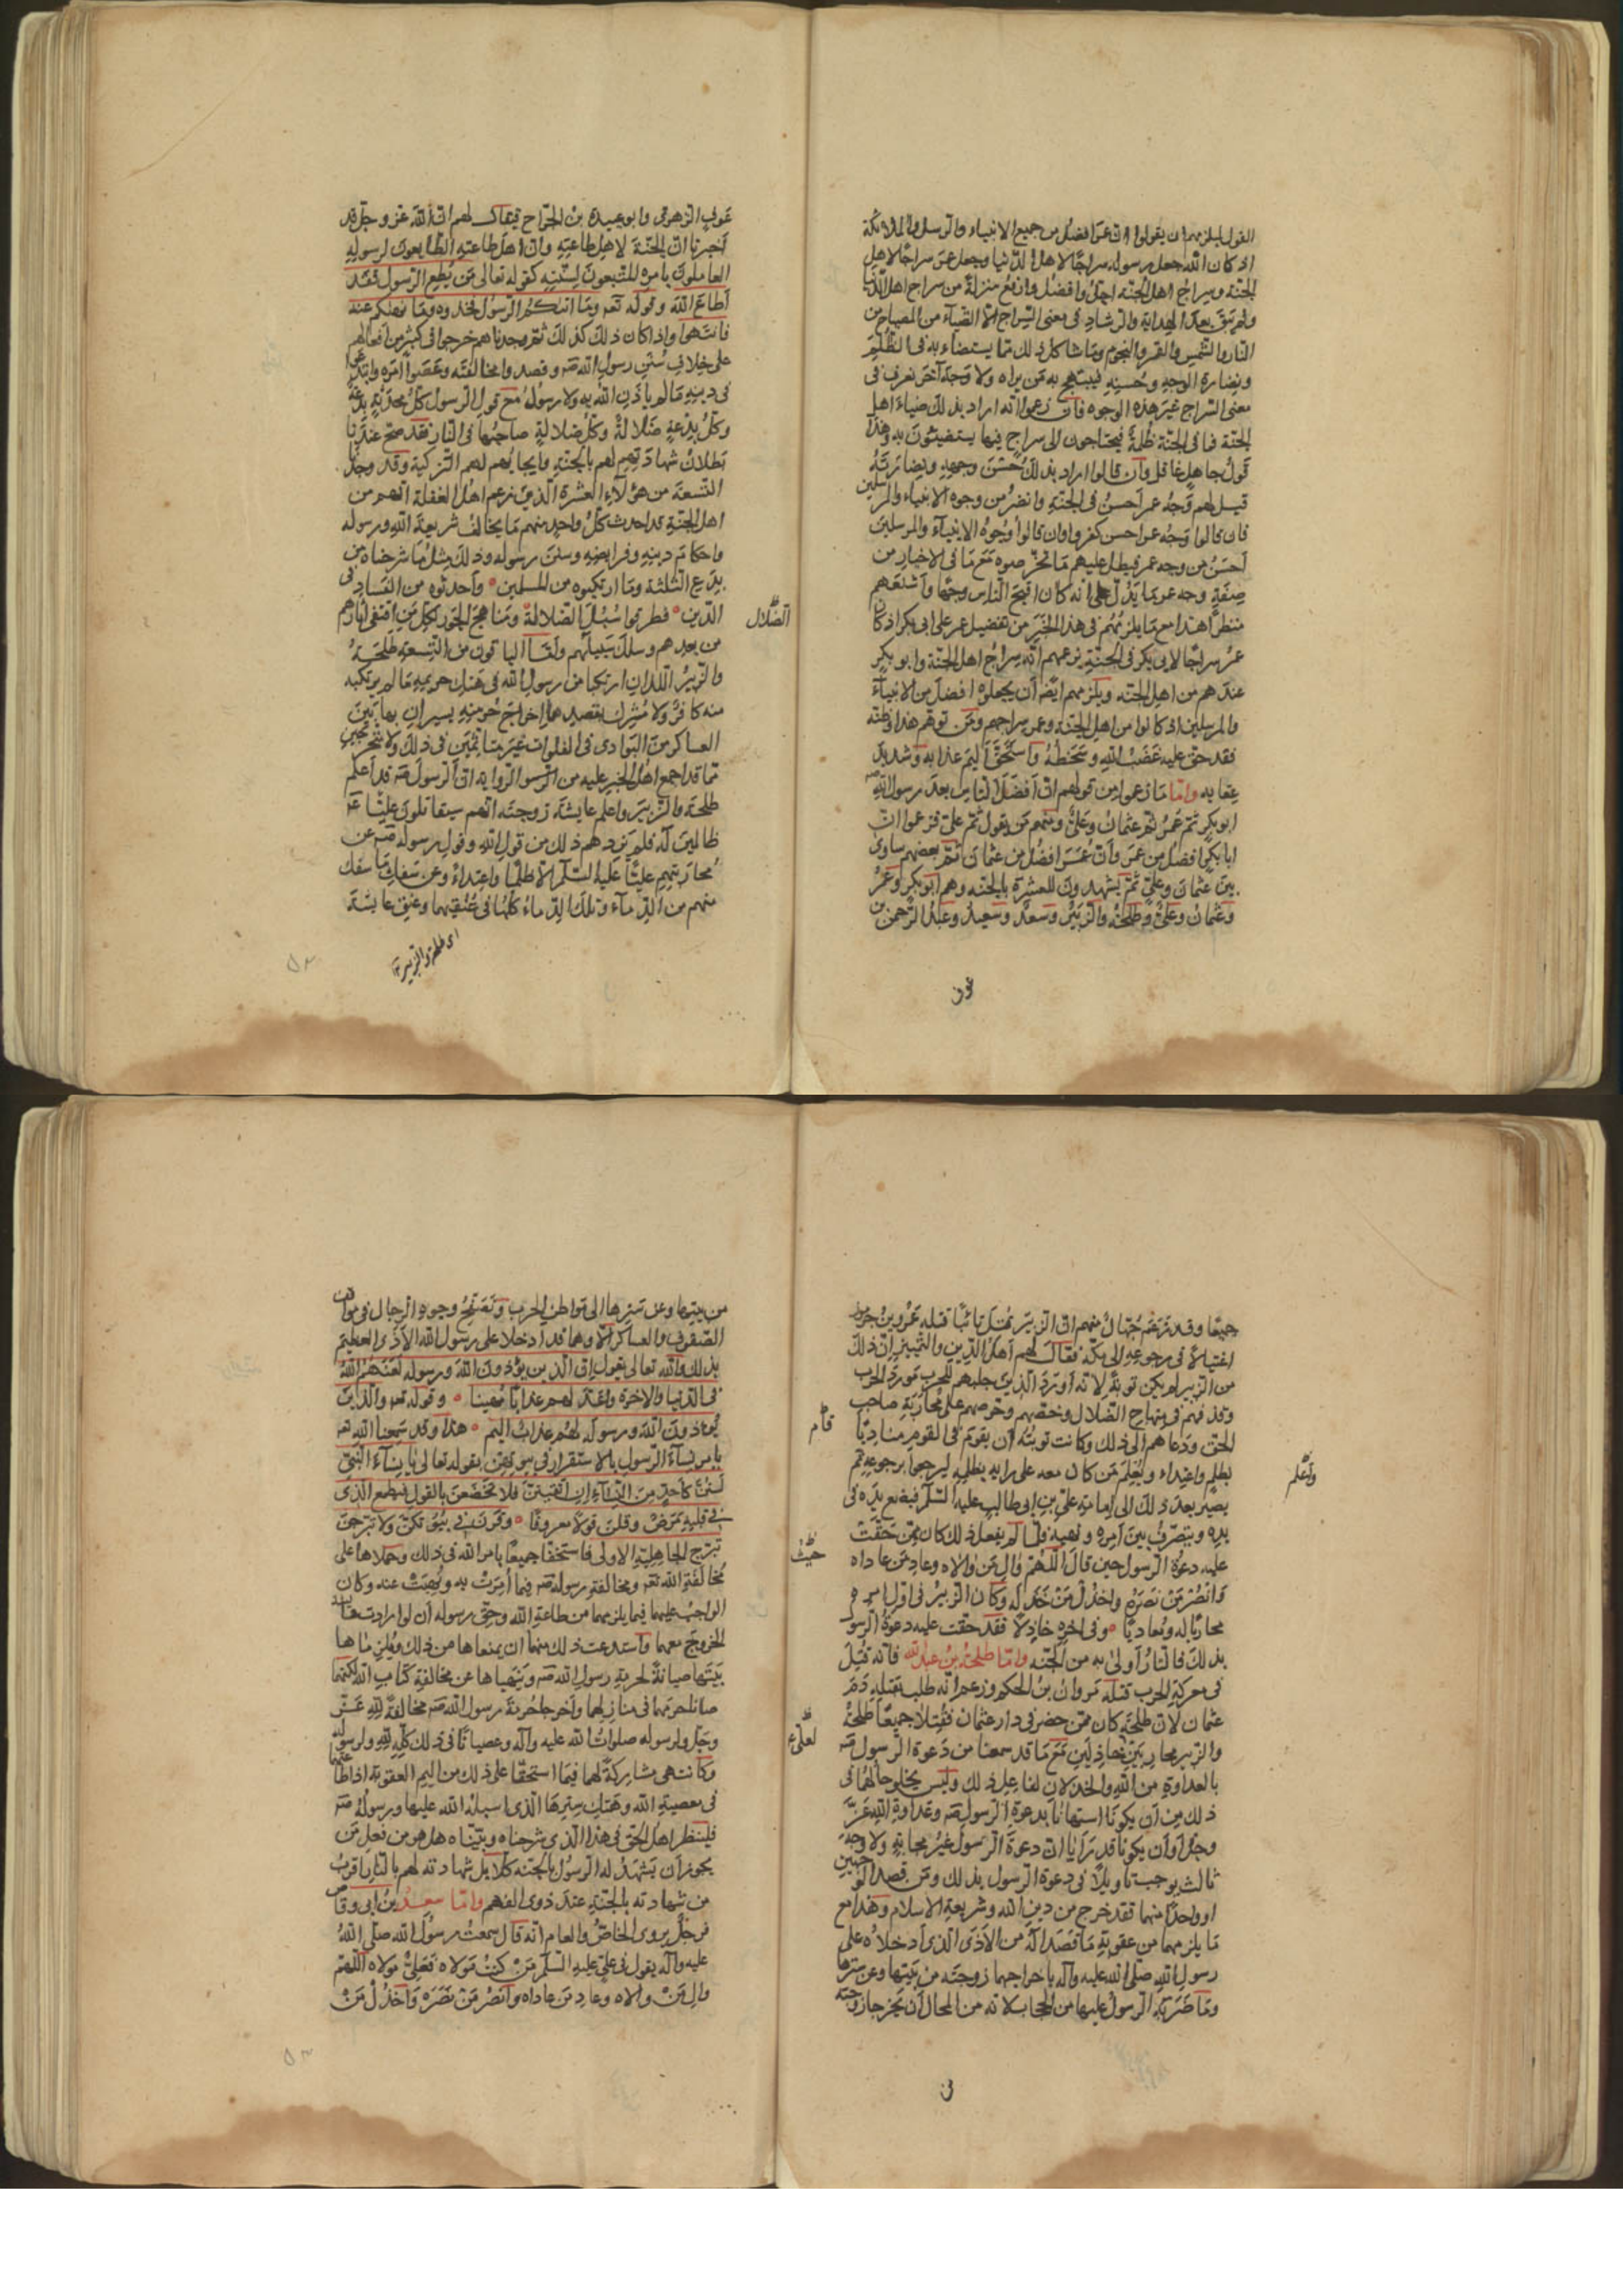 القول يلزمهم ان يقولوا ان عمر افضل من جميع الانبياء والرسل والملائكة
اذ كان الله جعل رسوله سراجًا لاهل الدنيا وجعل عمر سراجًا لاهل
الجنة وسراج اهل الجنة اجل وافضل وارفع منزلة من سراج اهل الدنيا
ولم يبق بعد الهداية والرشاد فى معنى السراج الا الضياء من المصباح من
النار والشمس والقمر والنجوم وما شاكل ذلك مما يستضاء به فى الظُلَم
ونضارة الوجه وحُسنه فيبتهج به من يراه ولا وجه آخر نعرف فى
معنى السراج غير هذه الوجوه فان زعموا انه اراد بذلك ضياء اهل
الجنة فما فى الجنة ظُلمة فيحتاجون الى سراج فيها يستضيئون به وهذا
قول جاهل غافل وان قالوا اراد بذلك حُسنَ وجهه ونضارته
قيل لهم وجه عمر احسن فى الجنة وانضر من وجوه الانبياء والمرسلين
فان قالوا وجه عمر احسن كفروا وان قالوا وجوه الانبياء والمرسلين
احسن من وجه عمر فيطل عليهم ما تخرصوه مع ما فى الاخبار من
صفة وجه عمر بما يدل على انه كان اقبح الناس وجهًا واشنعهم
منظرًا هذا مع ما يلزمهم فى هذا الخبر من تفضيل عمر على ابى بكر اذ كان
عمر سراجًا لابى بكر فى الجنة بزعمهم انه سراج اهل الجنة وابو بكر
عندهم من اهل الجنة ويلزمهم ايضًا ان يجعلوه افضل من الانبياء
والمرسلين اذ كانوا من اهل الجنة وعمر سراجهم ومن توهم هذا وظنه
فقد حق عليه غضب الله وسخطه واستحق اليم عذابه وشديد
عقابه واما ما زعموا من قولهم ان افضل الناس بعد رسول الله صه
ابو بكر ثم عمر ثم عثمان وعلى ومنهم من يقول ثم على فزعموا ان
ابا بكر افضل من عمر وان عمر افضل من عثمان ثم بعضهم ساوى
بين عثمان وعلى ثم يشهدون للعشرة بالجنة وهم ابو بكر وعمر
وعثمان وعلى وطلحة والزبير وسعد وسعيد وعبد الرحمن بن
عون
عوفٍ الزهرى وابو عبيدة بن الجراح فيقال لهم ان الله عز وجل قد
اخبرنا ان الجنة لاهل طاعته وان اهل طاعته الطايعون لرسوله
العاملون بامره المتبعون لسنته كقوله تعالى من يطع الرسول فقد
اطاع الله وقوله تعم وما اتيكم الرسول فخذوه وما نهيكم عنه
فانتهوا واذا كان ذلك كذلك ثم وجدناهم خرجوا فى كثير من افعالهم
على خلاف سُنَن رسول الله صه وقصدوا مخالفته وعَصَوا امره وابتدعوا
فى دينه ما لم ياذن الله به ولا رسوله مع قول الرسول كل محدثة بدعة
وكل بدعة ضلالة وكل ضلالة صاحبها فى النار فقد صح عندنا
بطلان شهادتهم لهم بالجنة وايجابهم لهم التزكية وقد وجدنا
التسعة من هؤلاء العشرة الذين زعم اهل الغفلة انهم من
اهل الجنة قد احدث كل واحد منهم ما يخالف شريعة الله ورسوله
واحكام دينه وفرايضه وسنن رسوله وذلك مثل ما شرحناه من
بدع الثلثة وما ارتكبوه من المسلمين وأحدثوه من الفساد فى
الدين فطرقوا سُبُلَ الضلالة ومناهج الجور لكل من اقتفى آثارهم
الضلال
من بعدهم وسلك سبيلهم واما الباقون من التسعة طلحة
والزبير اللذان ارتكبا من رسول الله فى هتك حريمه ما لم يرتكبه
منه كافر ولا مشرك بقصدهما اخراج حرمته يسيران بها بين
العساكر من البوادى فى الفلوات غير مباليين فى ذلك ولا متحرجين
مما قد اجمع اهل الخبر عليه من الرواية ان الرسول صه قد اعلم
طلحة والزبير واعلم عايشة زوجته انهم سيقاتلون عليًّا عم
ظالمين له فلم يزدهم ذلك من قول الله وقول رسوله صه عن
محاربتهم عليًّا عليه السلم الا ظلمًا واعتداءً وعن سفك ما سفك
منهم من الدماء وتلك الدماء كلها فى عنقهما وعنق عايشة
اى طلحة والزبير
جميعًا وقد زعم جهال منهم ان الزبير قتل تائبًا قتله عمرو بن جرموز
اغتيالًا فى رجوعه الى مكة فقال لهم اهل الدين والتمييز ان ذلك
من الزبير لم يكن توبة لانه اورد الذين جلبهم للحرب مورد الحرب
وقذفهم فى منهاج الضلال وحضهم وحرصهم على محاربة صاحب
الحق ودعاهم الى ذلك وكانت توبته ان يقوم فى القوم مناديًا
قام
بظلمه واعتداءه ويُعلِم من كان معه على رايه بظلمه ليرجعوا برجوعه ثم
واعلم
يصير بعد ذلك الى امامه على بن ابى طالب عليه السلم فيضع يده فى
يده ويتصرف بين امره ونهيه فلما لم يفعل ذلك كان ممن حقت
حيث
عليه دعوة الرسول حين قال اللهم وال من والاه وعاد من عاداه
وانصر من نصره واخذل من خذله وكان الزبير فى اول امره
محاربًا له ومعاديًا وفى آخره خاذلًا فقد حقت عليه دعوة الرسول
بذلك فالنار اولى به من الجنة واما طلحة بن عبد الله فانه قتل
فى معركة الحرب قتله مروان بن الحكم وزعم انه طلب بقتله دم
عثمان لان طلحة كان ممن حضر فى دار عثمان فقتلا جميعًا طلحة
لعلى ع
والزبير محاربين خاذلين مع ما قد سمعنا من دعوة الرسول صه
بالعداوة من الله والخذلان لفاعل ذلك وليس يخلو حالهما فى
ذلك من ان يكونا استهانا بدعوة الرسول صه وعداوة الله عز
وجل او ان يكونا قد رايا ان دعوة الرسول غير مجابة ولا وجه
ثالث يوجب تاويلا فى دعوة الرسول بذلك ومن قصد الوجهين
او واحدًا منهما فقد خرج من دين الله وشريعة الاسلام وهذا مع
ما يلزمهما من عقوبة ما قصدا له من الاذى الذى ادخلاه على
رسول الله صلى الله عليه وآله باخراجهما زوجته من بيتها وعن سترها
وما ضربه الرسول عليها من الحجاب لانه من المحال ان تخرجا زوجته
من
من بيتها وعن سترها الى مواطن الحرب وتصفح وجوه الرجال فى مواطن
الصفوف والعساكر الا وهما قد ادخلا على رسول الله الاذى العظيم
بذلك والله تعالى يقول ان الذين يؤذون الله ورسوله لعنهم الله
فى الدنيا والاخرة واعد لهم عذابا مهينا وقوله تعم والذين
يؤذون الله ورسوله لهم عذاب اليم هذا وقد سمعنا الله تعم
يامر نساء الرسول بالاستقرار فى بيوتهن بقوله تعالى يا نساء النبى
لستن كاحد من النساء ان اتقيتن فلا تخضعن بالقول فيطمع الذى
فى قلبه مرض وقلن قولا معروفا وقرن فى بيوتكن ولا تبرجن
تبرج الجاهلية الاولى فاستخفا جميعًا بامر الله فى ذلك وحملاها على
مخالفة الله تعم ومخالفة رسوله صه فيما أُمِرَت به ونُهيت عنه وكان
الواجب عليهما فيما يلزمهما من طاعة الله وحق رسوله ان لو ارادت هى
الخروج معهما واستدعت ذلك منهما ان يمنعاها من ذلك ويلزماها
بيتها صيانة لحرمة رسول الله صه وينهياها عن مخالفة كتاب الله لكنهما
صانا حرمهما فى منازلهما واخرجا حرمة رسول الله صه مخالفة لله عز
وجل ولرسوله صلوات الله عليه وآله وعصيانًا فى ذلك كله لله ولرسوله
وكانت هى مشاركة لهما فيما استحقا على ذلك من اليم العقوبة اذ اطاعتهما
فى معصية الله وهتك سترها الذى اسبله الله عليها ورسوله صه
فلينظر اهل الحق فى هذا الذى شرحناه وبيّناه هل هو من فعل من
يجوز ان يشهد له الرسول بالجنة كلا بل شهادته لهم بالنار اقرب
من شهادته بالجنة عند ذوى الفهم واما سعد بن ابى وقاص
فرجل يروى الخاص والعام انه قال سمعت رسول الله صلى الله
عليه وآله يقول فى على عليه السلم من كنت مولاه فعلى مولاه اللهم
وال من والاه وعاد من عاداه وانصر من نصره واخذل من